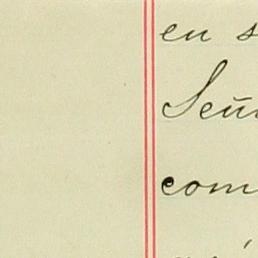 en s
Señ
com